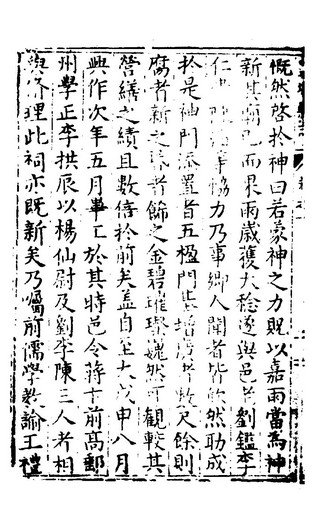 慨然啓於神曰若蒙神之力貺以嘉雨當為神
新其廟已而果雨歲獲大稔遂與邑劉鑑李
仁協力乃事鄉人聞者皆欣然助成
於是神門添置者五楹門尺餘則
腐者新之者飾之金碧璀璨然可觀較其
營繕之績且數倍於前矣蓋自至大戊申八月
興作次年五月畢工於其時邑令蔣士前高郵
州學正李拱辰以楊仙尉及劉李陳三人者相
與理此祠亦既新矣乃囑前儒學教諭王禮